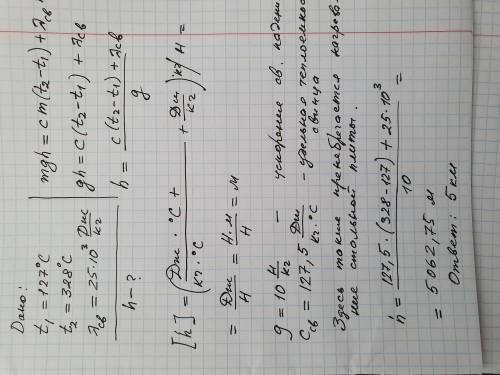 Дано:
t₁ = 127°C
t₂ = 328°C
λсв = 25·10³ Дж/кг
h – ?
mgh = cm(t₂-t₁) + λсв
gh = c(t₂-t₁) + λсв
h = (c(t₂-t₁) + λсв)/g
[h] = (Дж·°C/кг·°C + Дж/кг)·кг/Н =
= Дж/Н = Н·м/Н = м
g = 10 Н/кг — ускорение св. падени
Cсв = 127,5 Дж/кг·°C - удельная теплоемкос
свинца
Здесь также пренебрегается нагрова-
ние стальной плиты.
h = (127,5·(328-127) + 25·10³)/10 =
= 5062,75 м
Ответ: 5 км